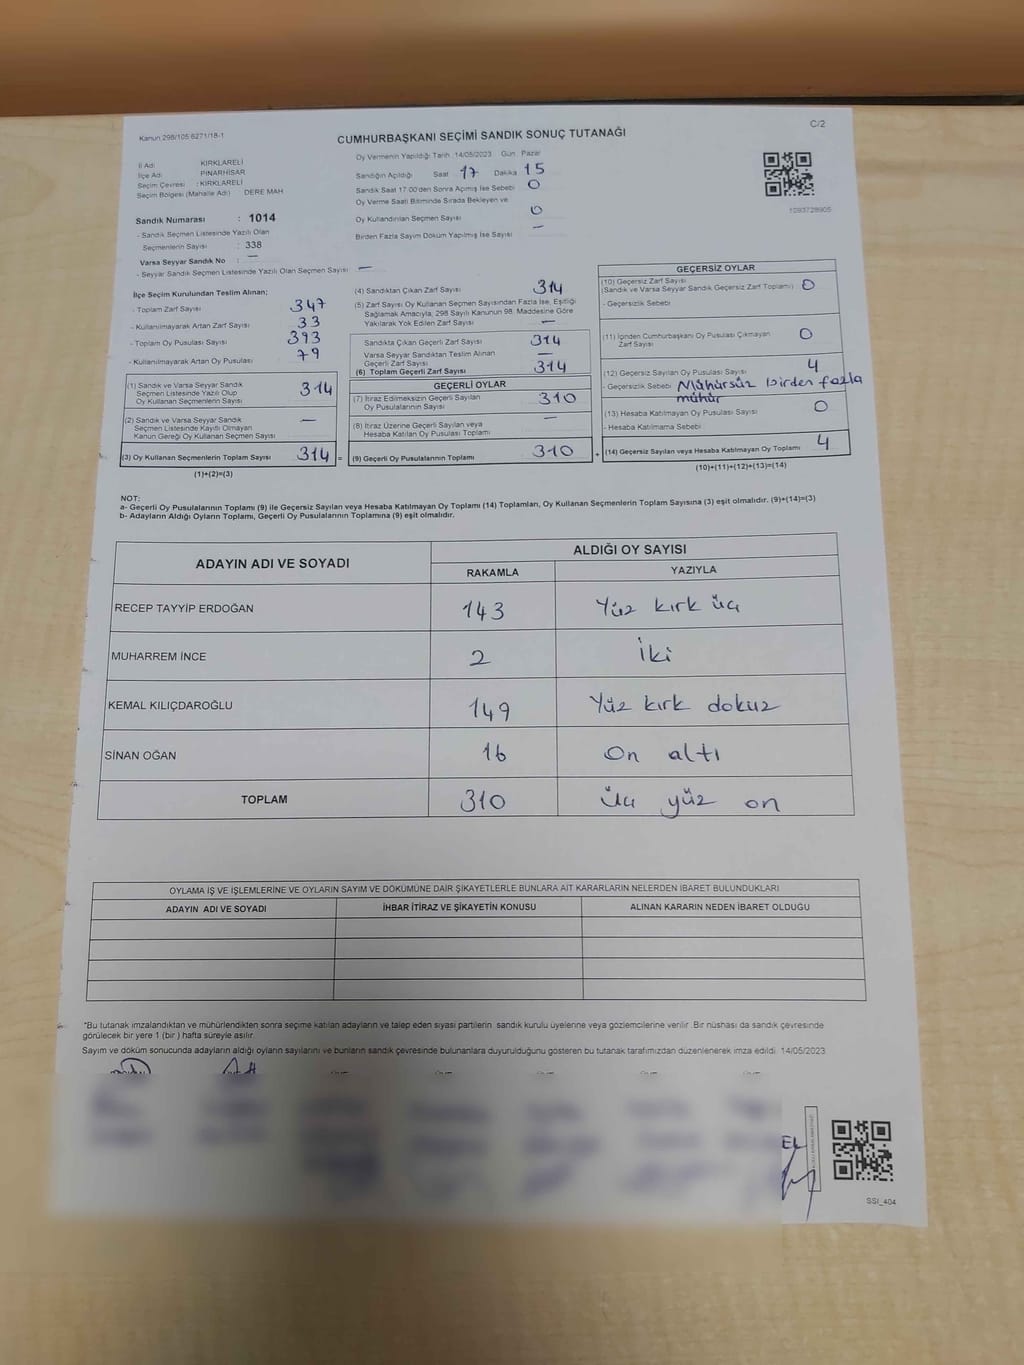 Kanun 298/105 6271/18-1
C/2
CUMHURBAŞKANI SEÇİMİ SANDIK SONUÇ TUTANAĞI
İl Adı : KIRKLARELİ
İlçe Adı : PINARHİSAR
Seçim Çevresi : KIRKLARELİ
Seçim Bölgesi (Mahalle Adı) DERE MAH
Oy Vermenin Yapıldığı Tarih :14/05/2023 Gün : Pazar
Sandığın Açıldığı Saat 17 Dakika 15
Sandık Saat 17:00'den Sonra Açılmış İse Sebebi 0
Oy Verme Saati Bitiminde Sırada Bekleyen ve
Oy Kullandırılan Seçmen Sayısı 0
Birden Fazla Sayım Döküm Yapılmış İse Sayısı —
1093728905
Sandık Numarası : 1014
- Sandık Seçmen Listesinde Yazılı Olan
Seçmenlerin Sayısı : 338
Varsa Seyyar Sandık No : —
- Seyyar Sandık Seçmen Listesinde Yazılı Olan Seçmen Sayısı : —
İlçe Seçim Kurulundan Teslim Alınan;
- Toplam Zarf Sayısı 347
- Kullanılmayarak Artan Zarf Sayısı 33
- Toplam Oy Pusulası Sayısı 393
- Kullanılmayarak Artan Oy Pusulası 79
(1) Sandık ve Varsa Seyyar Sandık
Seçmen Listesinde Yazılı Olup
Oy Kullanan Seçmenlerin Sayısı 314
(2) Sandık ve Varsa Seyyar Sandık
Seçmen Listesinde Kayıtlı Olmayan
Kanun Gereği Oy Kullanan Seçmen Sayısı —
(3) Oy Kullanan Seçmenlerin Toplam Sayısı 314 =
(1)+(2)=(3)
(4) Sandıktan Çıkan Zarf Sayısı 314
(5) Zarf Sayısı Oy Kullanan Seçmen Sayısından Fazla İse, Eşitliği
Sağlamak Amacıyla, 298 Sayılı Kanunun 98. Maddesine Göre
Yakılarak Yok Edilen Zarf Sayısı —
Sandıkta Çıkan Geçerli Zarf Sayısı 314
Varsa Seyyar Sandıktan Teslim Alınan
Geçerli Zarf Sayısı —
(6) Toplam Geçerli Zarf Sayısı 314
GEÇERLİ OYLAR
(7) İtiraz Edilmeksizin Geçerli Sayılan
Oy Pusulalarının Sayısı 310
(8) İtiraz Üzerine Geçerli Sayılan veya
Hesaba Katılan Oy Pusulası Toplamı —
(9) Geçerli Oy Pusulalarının Toplamı 310 +
GEÇERSİZ OYLAR
(10) Geçersiz Zarf Sayısı
(Sandık ve Varsa Seyyar Sandık Geçersiz Zarf Toplamı) 0
- Geçersizlik Sebebi
(11) İçinden Cumhurbaşkanı Oy Pusulası Çıkmayan
Zarf Sayısı 0
(12) Geçersiz Sayılan Oy Pusulası Sayısı 4
- Geçersizlik Sebebi Mühürsüz birden fazla
mühür
(13) Hesaba Katılmayan Oy Pusulası Sayısı 0
- Hesaba Katılmama Sebebi
(14) Geçersiz Sayılan veya Hesaba Katılmayan Oy Toplamı 4
(10)+(11)+(12)+(13)=(14)
NOT:
a- Geçerli Oy Pusulalarının Toplamı (9) ile Geçersiz Sayılan veya Hesaba Katılmayan Oy Toplamı (14) Toplamları, Oy Kullanan Seçmenlerin Toplam Sayısına (3) eşit olmalıdır. (9)+(14)=(3)
b- Adayların Aldığı Oyların Toplamı, Geçerli Oy Pusulalarının Toplamına (9) eşit olmalıdır.
ADAYIN ADI VE SOYADI
ALDIĞI OY SAYISI
RAKAMLA YAZIYLA
RECEP TAYYİP ERDOĞAN 143 Yüz kırk üç
MUHARREM İNCE 2 İki
KEMAL KILIÇDAROĞLU 149 Yüz kırk dokuz
SİNAN OĞAN 16 On altı
TOPLAM 310 Üç yüz on
OYLAMA İŞ VE İŞLEMLERİNE VE OYLARIN SAYIM VE DÖKÜMÜNE DAİR ŞİKAYETLERLE BUNLARA AİT KARARLARIN NELERDEN İBARET BULUNDUKLARI
ADAYIN ADI VE SOYADI İHBAR İTİRAZ VE ŞİKAYETİN KONUSU ALINAN KARARIN NEDEN İBARET OLDUĞU
*Bu tutanak imzalandıktan ve mühürlendikten sonra seçime katılan adayların ve talep eden siyasi partilerin sandık kurulu üyelerine veya gözlemcilerine verilir. Bir nüshası da sandık çevresinde
görülecek bir yere 1 (bir ) hafta süreyle asılır.
Sayım ve döküm sonucunda adayların aldığı oyların sayılarını ve bunların sandık çevresinde bulunanlara duyurulduğunu gösteren bu tutanak tarafımızdan düzenlenerek imza edildi. 14/05/2023
EL
SSI_404